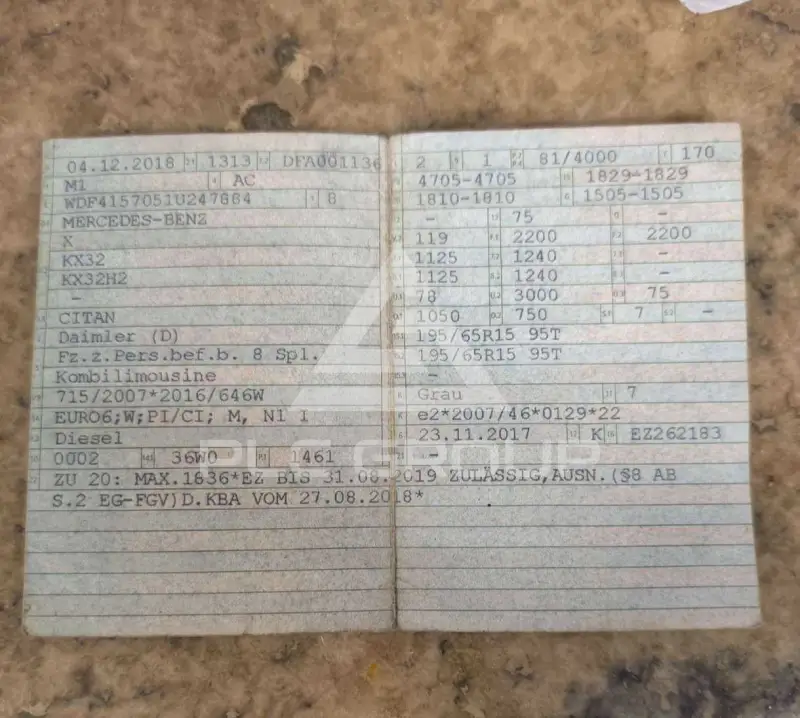 04.12.2018 1313 DFA001136
M1 AC
WDF4157051U247664 8
MERCEDES-BENZ
X
KX32
KX32H2
-
CITAN
Daimler (D)
Fz.z.Pers.bef.b. 8 Spl.
Kombilimousine
715/2007*2016/646W
EURO6;W;PI/CI; M, N1 I
Diesel
0002 36W0 1461
ZU 20: MAX.1836*EZ BIS 31.08.2019 ZULÄSSIG,AUSN.(§8 AB
S.2 EG-FGV)D.KBA VOM 27.08.2018*
2 1 81/4000 170
4705-4705 1829-1829
1810-1810 1505-1505
- 75 -
119 2200 2200
1125 1240 -
1125 1240 -
78 3000 75
1050 750 7 -
195/65R15 95T
195/65R15 95T
-
Grau 7
e2*2007/46*0129*22
23.11.2017 K EZ262183
-
PLC GROUP